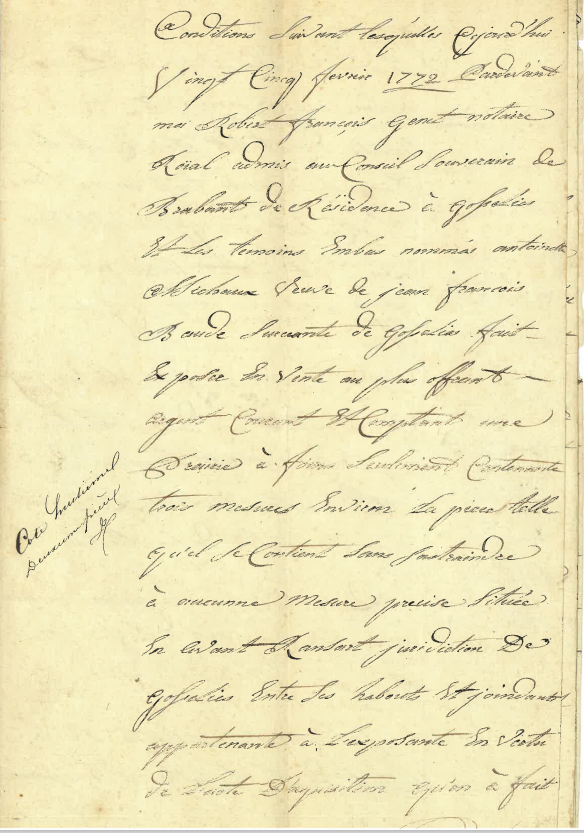 Conditions suivant lesquelles cejourd'hui
Vingt Cinq fevrie 1772 Pardevant
moi Robert françois Genut notaire
Roïal admis au Conseil Souverain de
Brabant de Résidence à Gosselies
Et Les temoins Embas nommés antoinette
Michaux Veuve de jean françois
Baude Survante de Gosselies fait
Exposer En Vente au plus offrant
argent Courant Et Comptant une
Prairie à foins seulement Contenante
trois mesures Environ La piece telle
qu'el se Contient sans
à aucunne mesure precise située
En avant Ransart juridiction De
Gosselies Entre Les Et joindants
appartenante à L'exposante En Vertu
de L'acte D'aquisition qu'on à fait
Cote